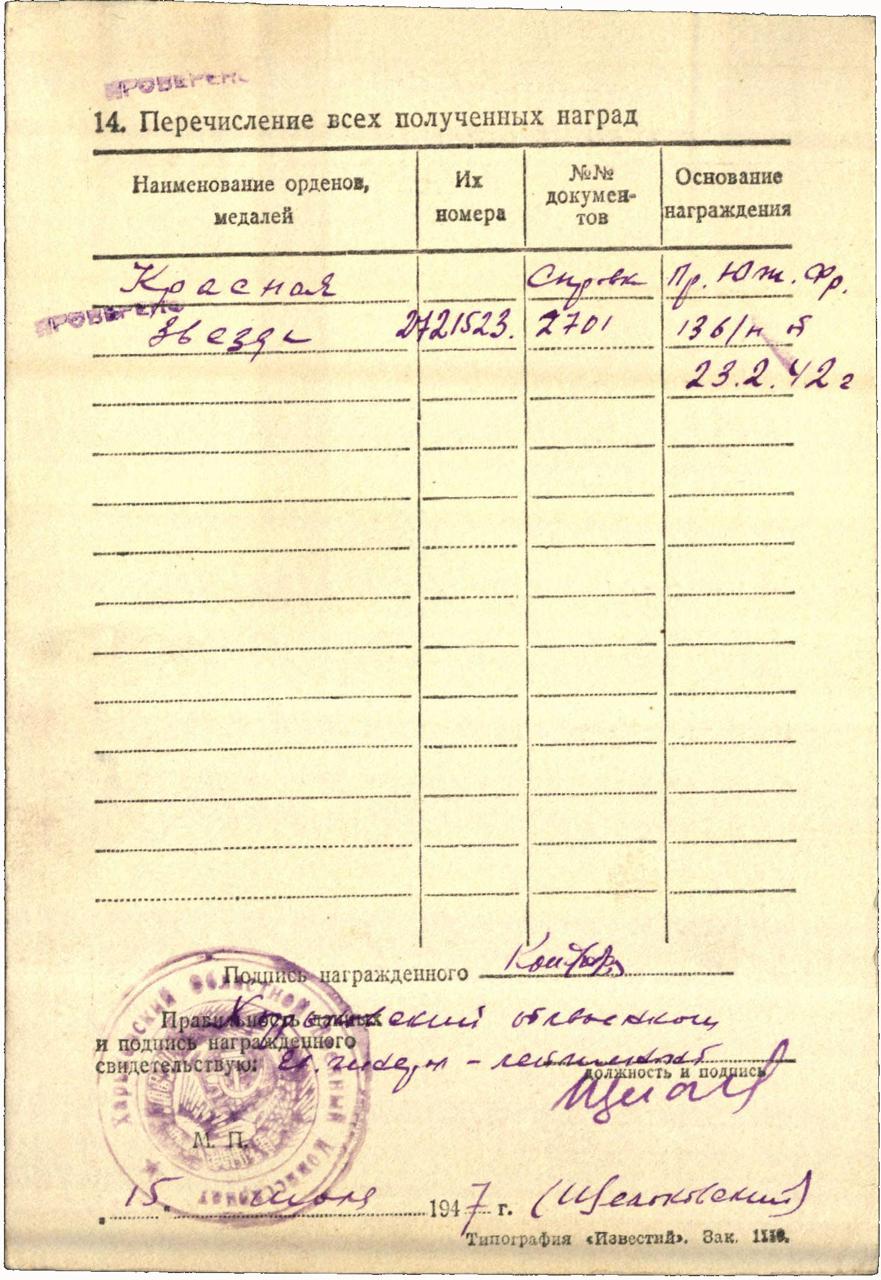 ПРОВЕРЕНО
14. Перечисление всех полученных наград
Наименование орденов, медалей
Их номера
№№ документов
Основание награждения
Красная Справк Пр. Юж. Фр.
ПРОВЕРЕНО
Звезда 2721523. 2701 136/н от
23.2.42 г
Подпись награжденного
Правильность данных Харьковский облвоенком
и подпись награжденного
свидетельствую: - лейтенант
должность и подпись
Харьковский Областной Военный Комиссариат
М. П.
"15" июля 1947 г. (Щелоковский)
Типография «Известий». Зак.